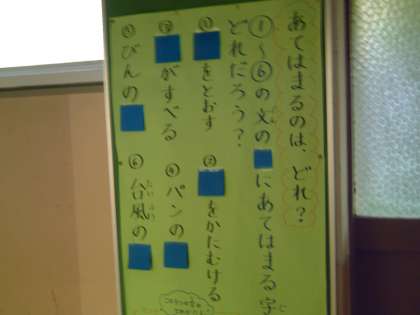 あてはまるのは、どれ？
①〜⑥の文の にあてはまる字
どれだろう？
① をとおす
② をかたむける
③ がすべる
④ パンの
⑤ びんの
⑥ 台風の